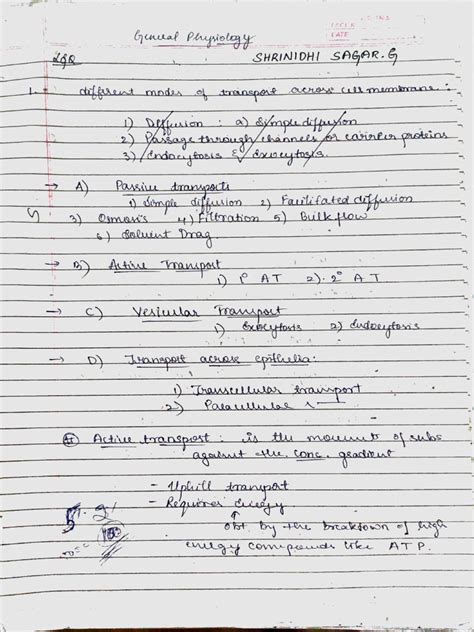 General Physiology
DATE
LAQ SHRINIDHI SAGAR.G
1. different modes of transport across cell membrane :
1) Diffusion : a) Simple diffusion
2) Passage through channels / or carrier proteins
3) Endocytosis & Exocytosis.
→ A) Passive transports
1) Simple diffusion 2) Facilitated diffusion
3) Osmosis 4) Filtration 5) Bulk flow
6) Solvent Drag
→ B) Active Transport
1) 1° AT 2) 2° AT.
→ C) Vesicular Transport
1) Exocytosis 2) Endocytosis
→ D) Transport across epithelia:
1) Transcellular transport
2) Paracellular
Active transport : is the movement of subs
against the conc. gradient
- Uphill transport
- Requires energy
↑
obt. by the breakdown of high
energy compounds like ATP.